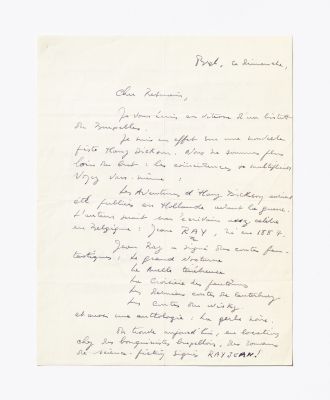 ce dimanche,
Cher Resnais,
Je vous écris, en retour d'un
de Bruxelles.
Je suis en effet sur une nouvelle
piste Harry Dickson. Nous ne sommes plus
loin du but : les coïncidences se multiplient
Voyez vous-même :
Les Aventures d'Harry Dickson avaient
été publiées en Hollande avant la guerre.
L'auteur serait un écrivain assez célèbre
en Belgique : Jean RAY, né en 1887.
Jean Ray a signé des contes fan-
tastiques : Le grand nocturne
La Ruelle ténébreuse
La Croisière des fantômes
Les Derniers contes de Canterbury
Les Contes du Wisky
et aussi une anthologie : La gerbe noire.
On trouve aujourd'hui, en location
chez des bouquinistes bruxellois, des romans
de science-fiction signés RAYJEAN!